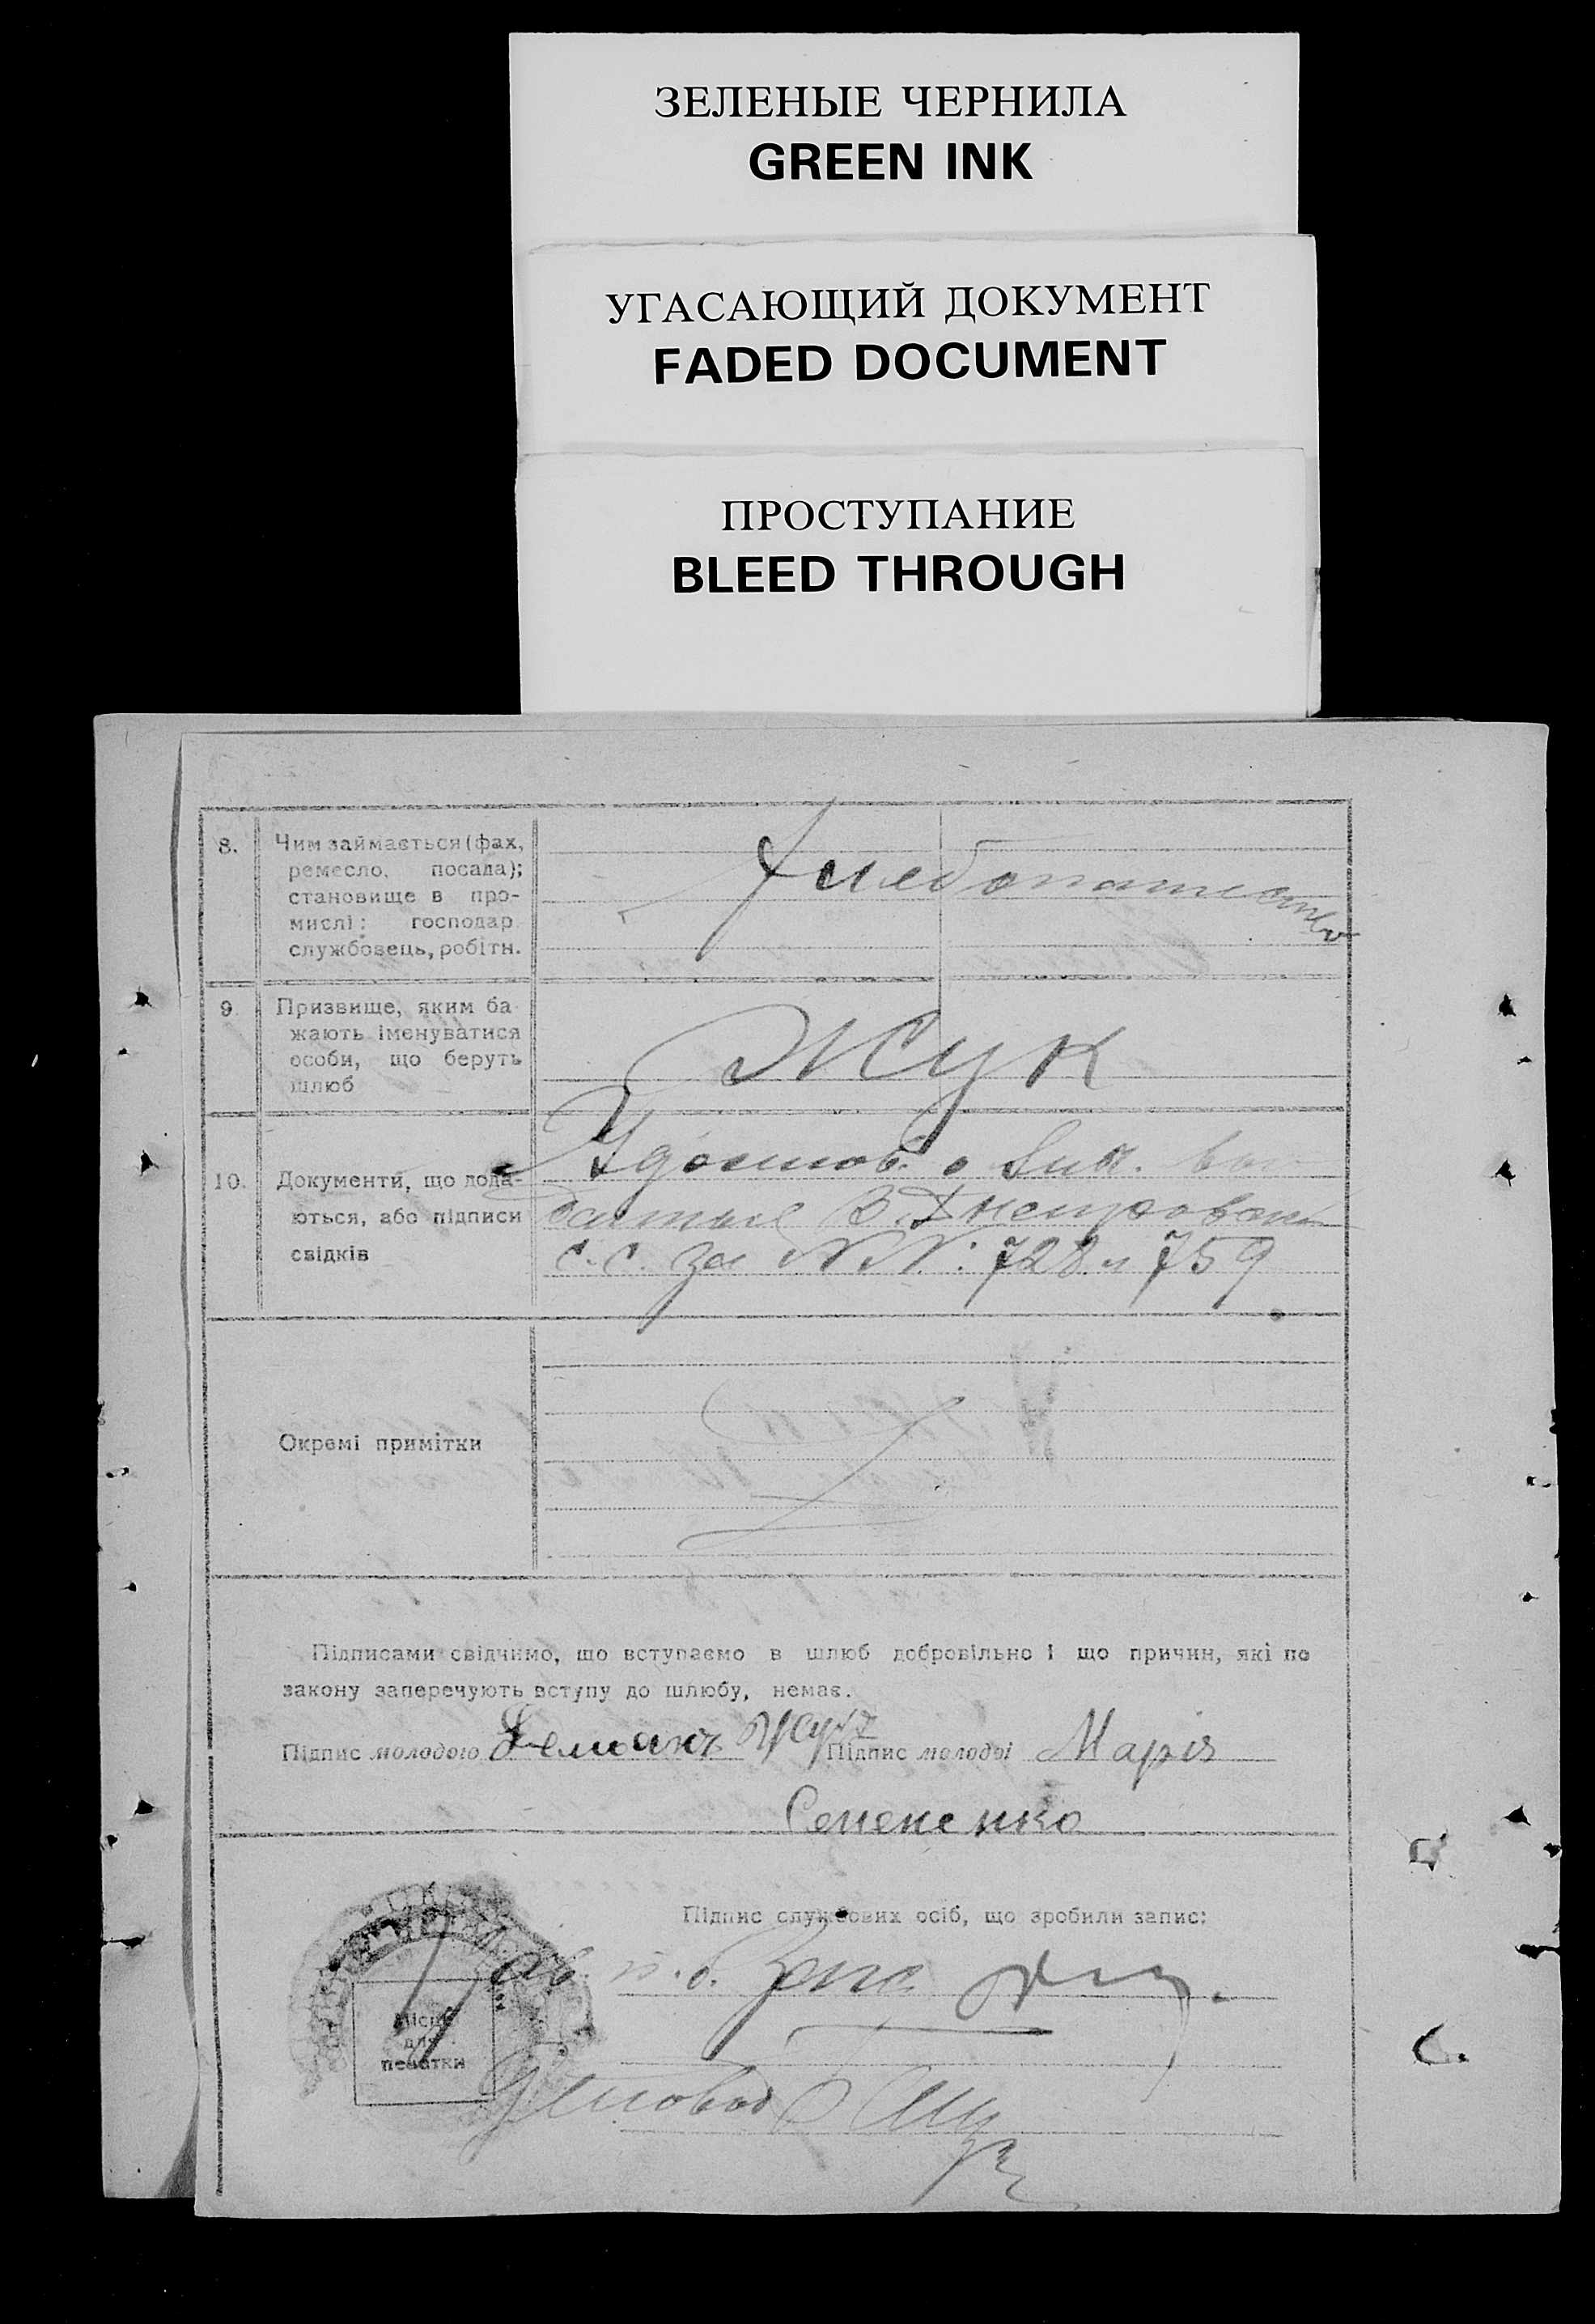 ЗЕЛЕНЫЕ ЧЕРНИЛА
GREEN INK
УГАСАЮЩИЙ ДОКУМЕНТ
FADED DOCUMENT
ПРОСТУПАНИЕ
BLEED THROUGH
8.
Чим займається (фах,
ремесло, посада);
становище в про-
мислі: господар
службовець, робітн.
Хлебопашество
9.
Призвище, яким ба-
жають іменуватися
особи, що беруть
шлюб
Жук
10.
Документи, що дода-
ються, або підписи
свідків
Удостов. о
В. Днепровск
с.с. за NN: 728 и 759
Окремі примітки
Підписами свідчимо, що вступаємо в шлюб добровільно і що причин, які по
закону заперечують вступу до шлюбу, немає.
Підпис молодого Демьянъ Жукъ Підпис молодої Марія
Семененко
Підпис службових осіб, що зробили запис:
Зав. п.б. Загса
Місце
для
печатки
Діловод